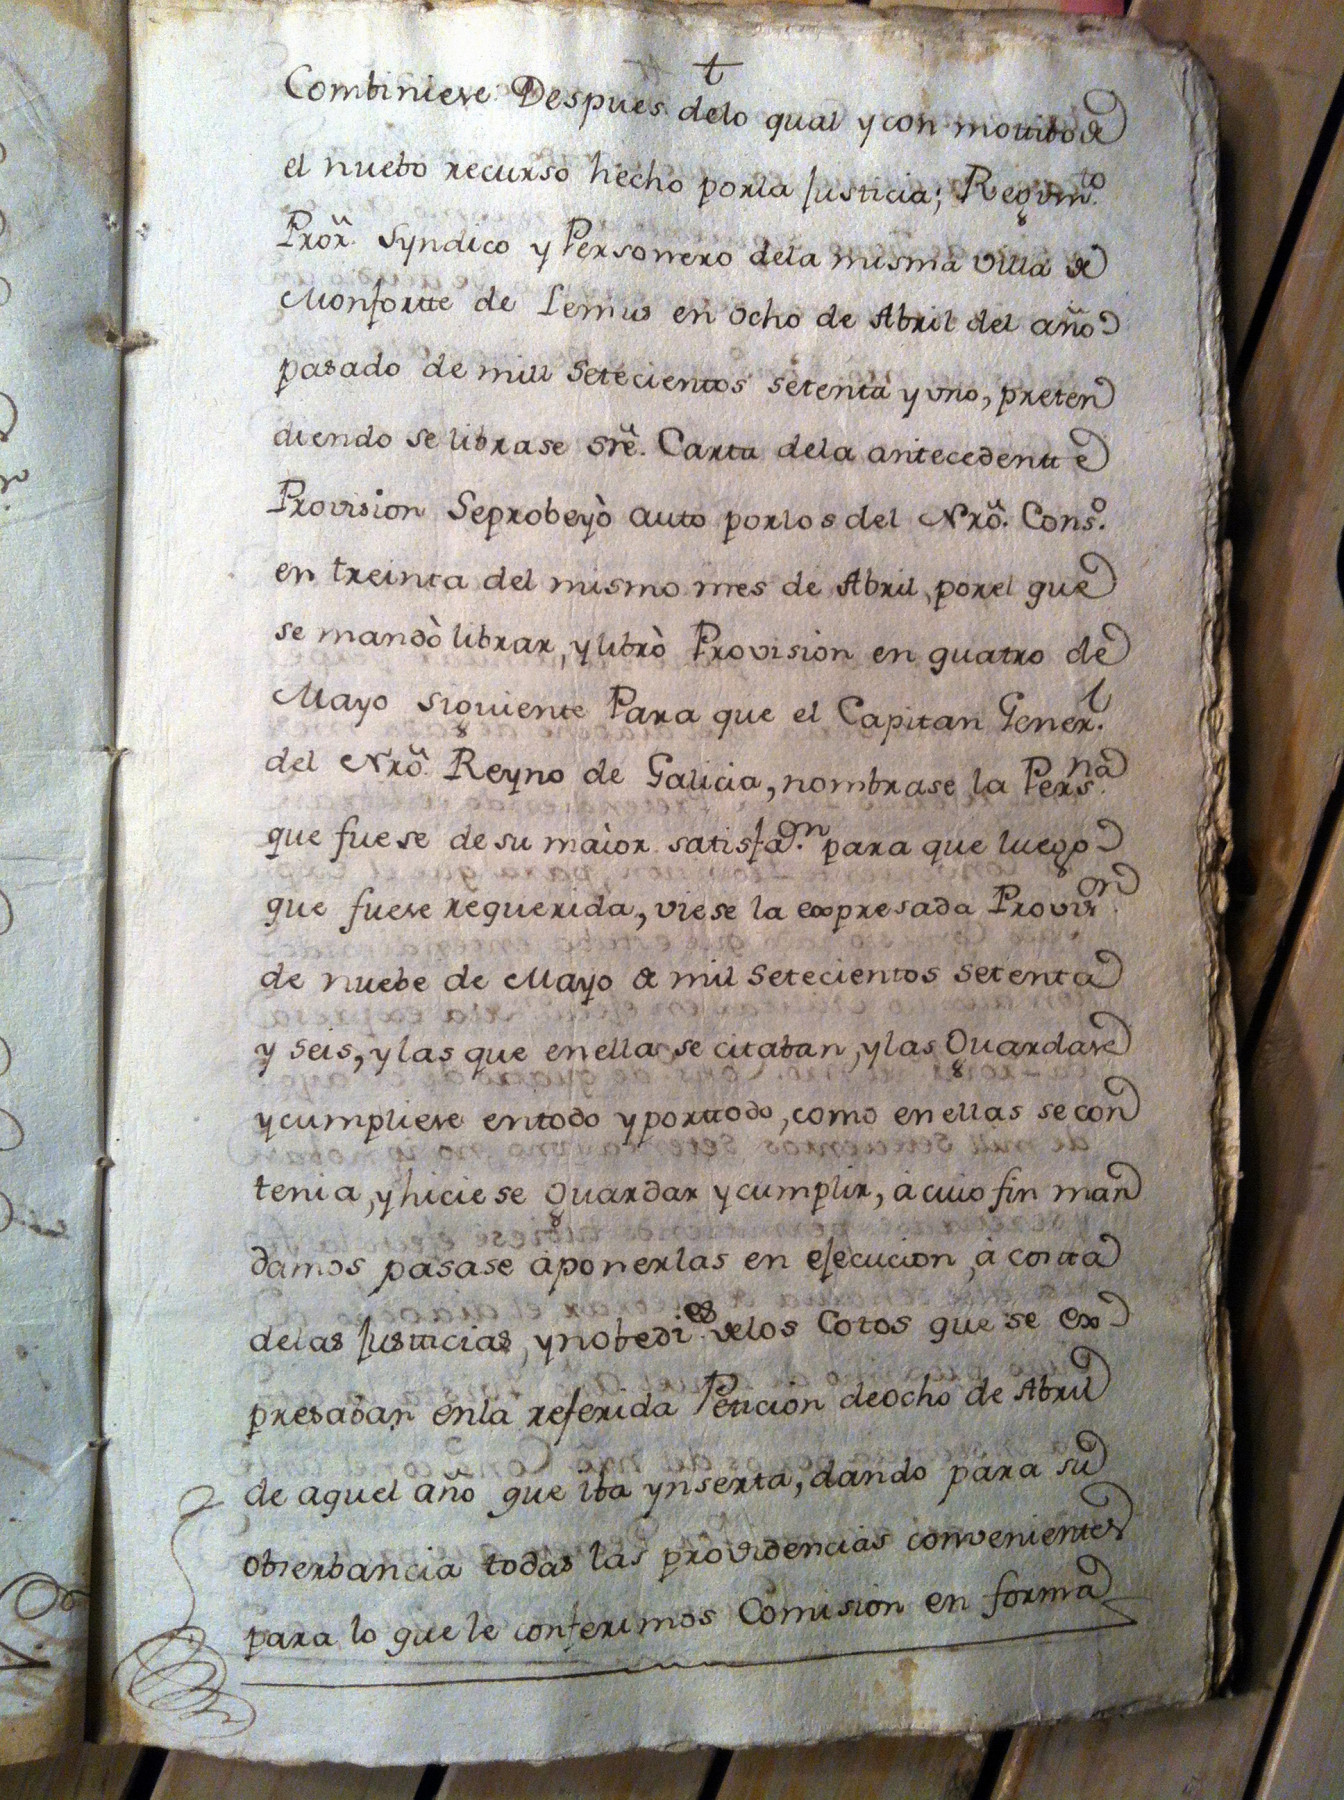 t
Combiniese. Despues delo qual y con mottibo de
el nuebo recurso hecho porla Justicia; Regim.to
Pror. Syndico y Personero dela misma Villa de
Monfortte de Lemus en ocho de Abril del año
pasado de mill setecientos setenta y uno, preten
diendo se librase sre. Carta dela antecedentte
Provision Seprobeyò auto porlos del Nro. Cons.o
en treinta del mismo mes de Abril, porel que
se mandò librar, y librò Provision en quatro de
Mayo siguiente Para que el Capitan Gener.l
del Nro. Reyno de Galicia, nombrase la Pers.na
que fuese de su maior satisfa.on para que luego
que fuese requerida, viese la expresada Provis.on
de nuebe de Mayo de mil setecientos setenta
y seis, y las que enella se citaban, y las Guardase
y cumpliese entodo y porttodo, como enellas se con
tenia, y hiciese Guardar y cumplir, à cuio fin man
damos pasase àponerlas en ejecucion, à costa
delas Justticias, ynobedi.es delos Cotos que se ex
presaban enla referida Peticion deocho de Abril
de aquel año que iba ynserta, dando para su
obserbancia todas las providencias convenientes
para lo que le conferimos Comision en forma